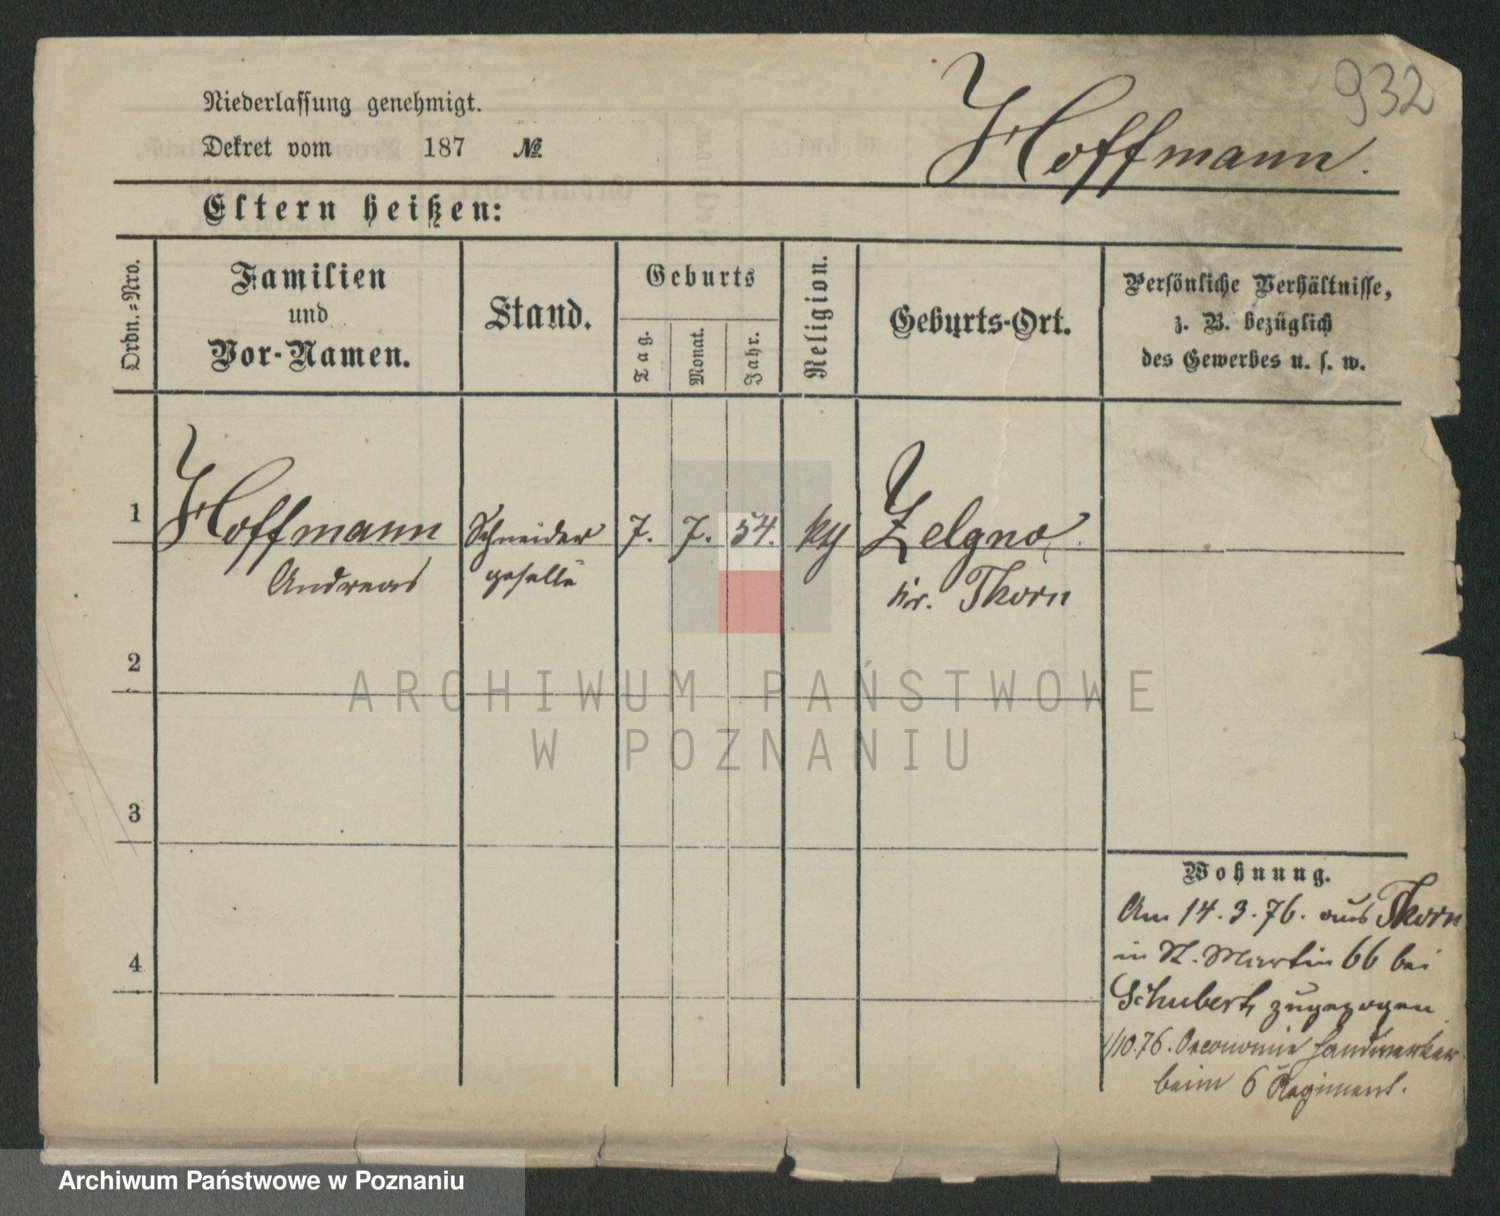 932
Niederlassung genehmigt.
Dekret vom 187 №
Hoffmann.
Eltern heißen:
Ordn.-Nro.
Familien
und
Vor-Namen.
Stand.
Geburts
Tag.
Monat.
Jahr.
Religion.
Geburts-Ort.
Persönliche Verhältnisse,
z. B. bezüglich
des Gewerbes u. s. w.
1 Hoffmann Schneider 7. 7. 54. kth Zelgno,
Andreas geselle Kr. Thorn
2
ARCHIWUM PAŃSTWOWE
W POZNANIU
3
Wohnung.
Am 14.3.76. aus Thorn
in St. Martin 66 bei
Schubert, zugezogen.
1/10.76. Oeconomie Handwerker
beim 6 Regiment.
4
Archiwum Państwowe w Poznaniu